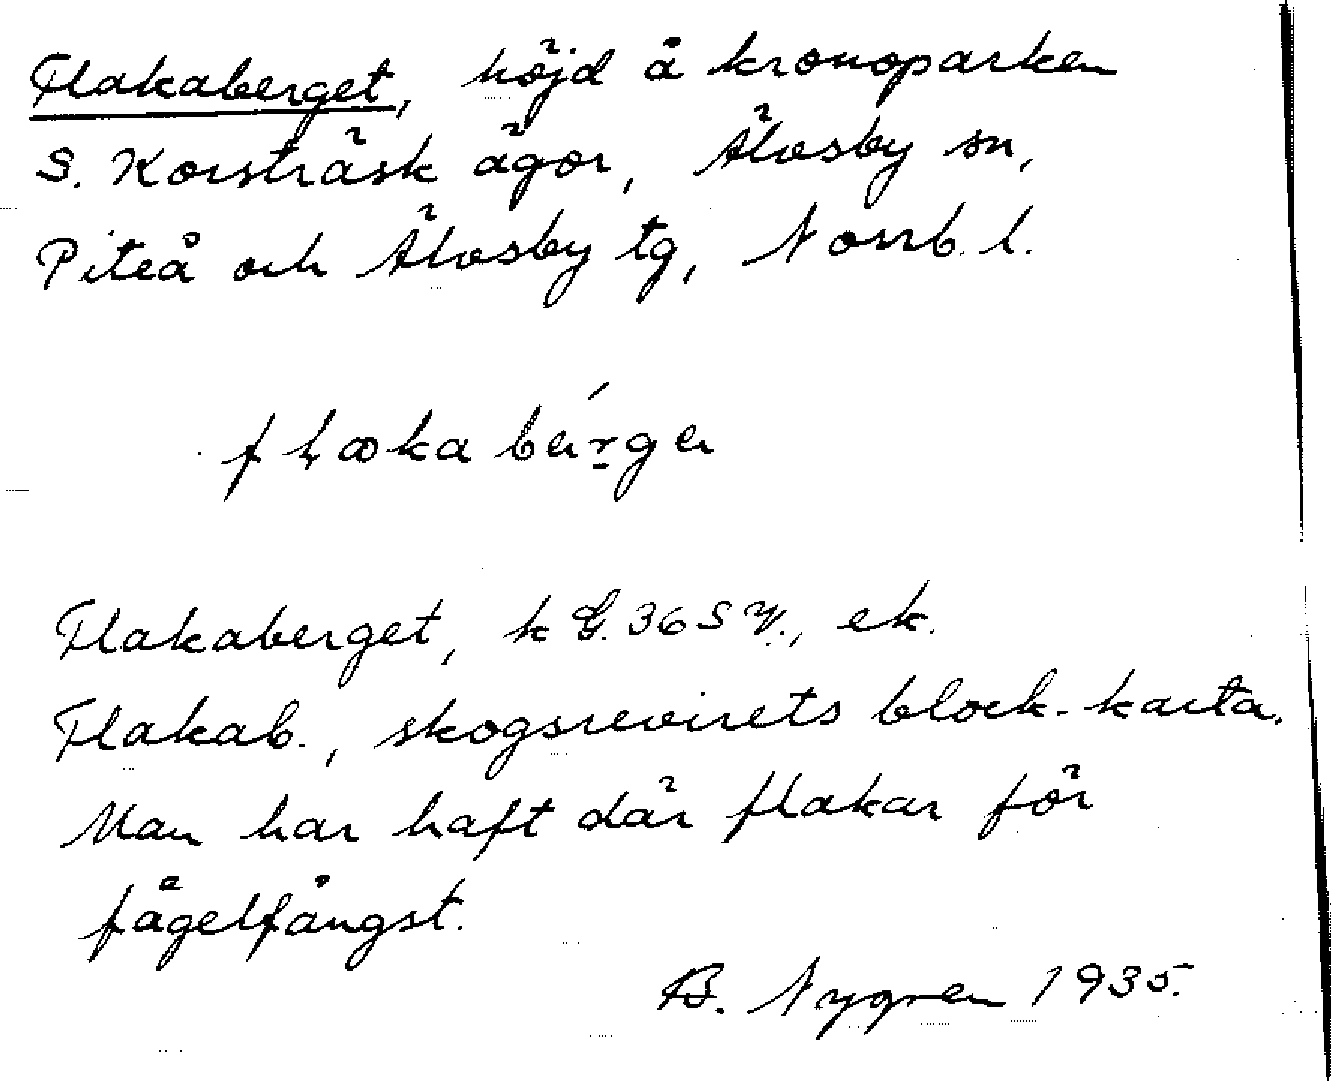 Flakaberget, höjd å kronoparken
S. Korsträsk ägor, Älvsby sn,
Piteå och Älvsby tg, Norrb. l.
flakabérge
Flakaberget, k G. 36 S V., ek.
Flakab., skogsrevirets block-karta.
Man har haft där flakar för
fågelfångst.
B. Nygren 1935.